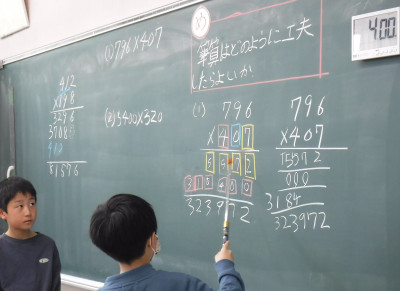 め
筆算はどのように工夫
したらよいか
400
(1) 796×407
(2) 5400×320
412
×198
3296
3708
(1) 796
×407
5572
318480
323972
796
×407
5572
000
3184
323972